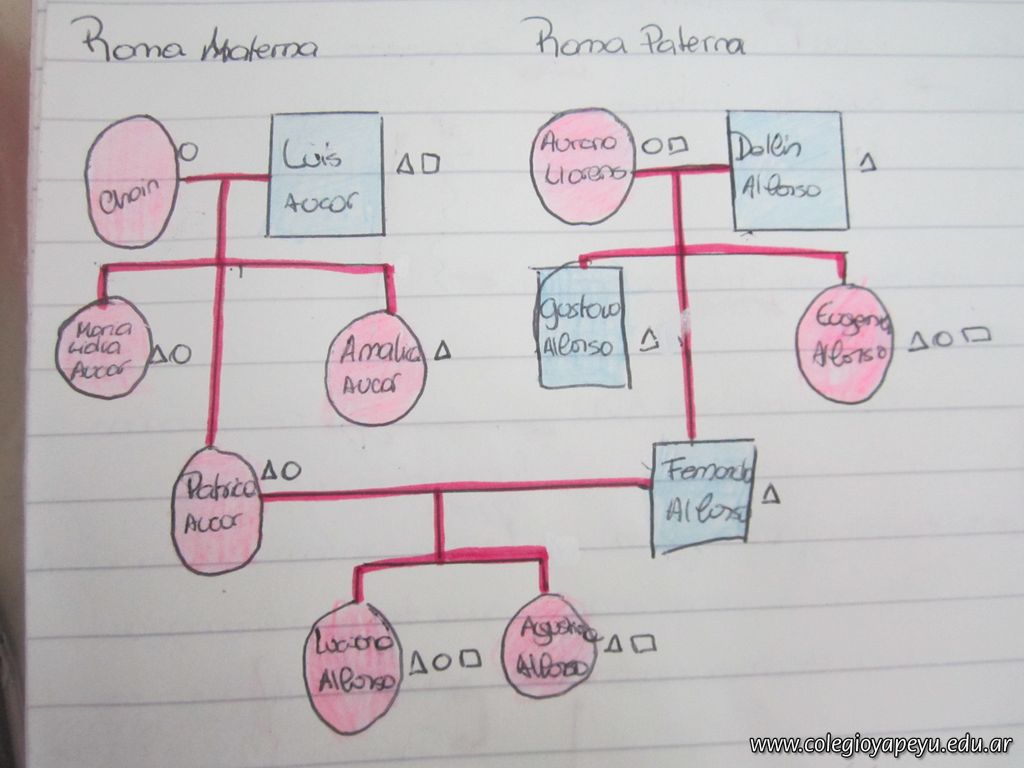 Rama Materna
Rama Paterna
Chain
Luis
Aucar
Aurora
Llorens
Delfín
Alfonso
Maria
Lidia
Aucar
Amalia
Aucar
Gustavo
Alfonso
Eugenia
Alfonso
Patrica
Aucar
Fernando
Alfonso
Luciana
Alfonso
Agustina
Alfonso
www.colegioyapeyu.edu.ar